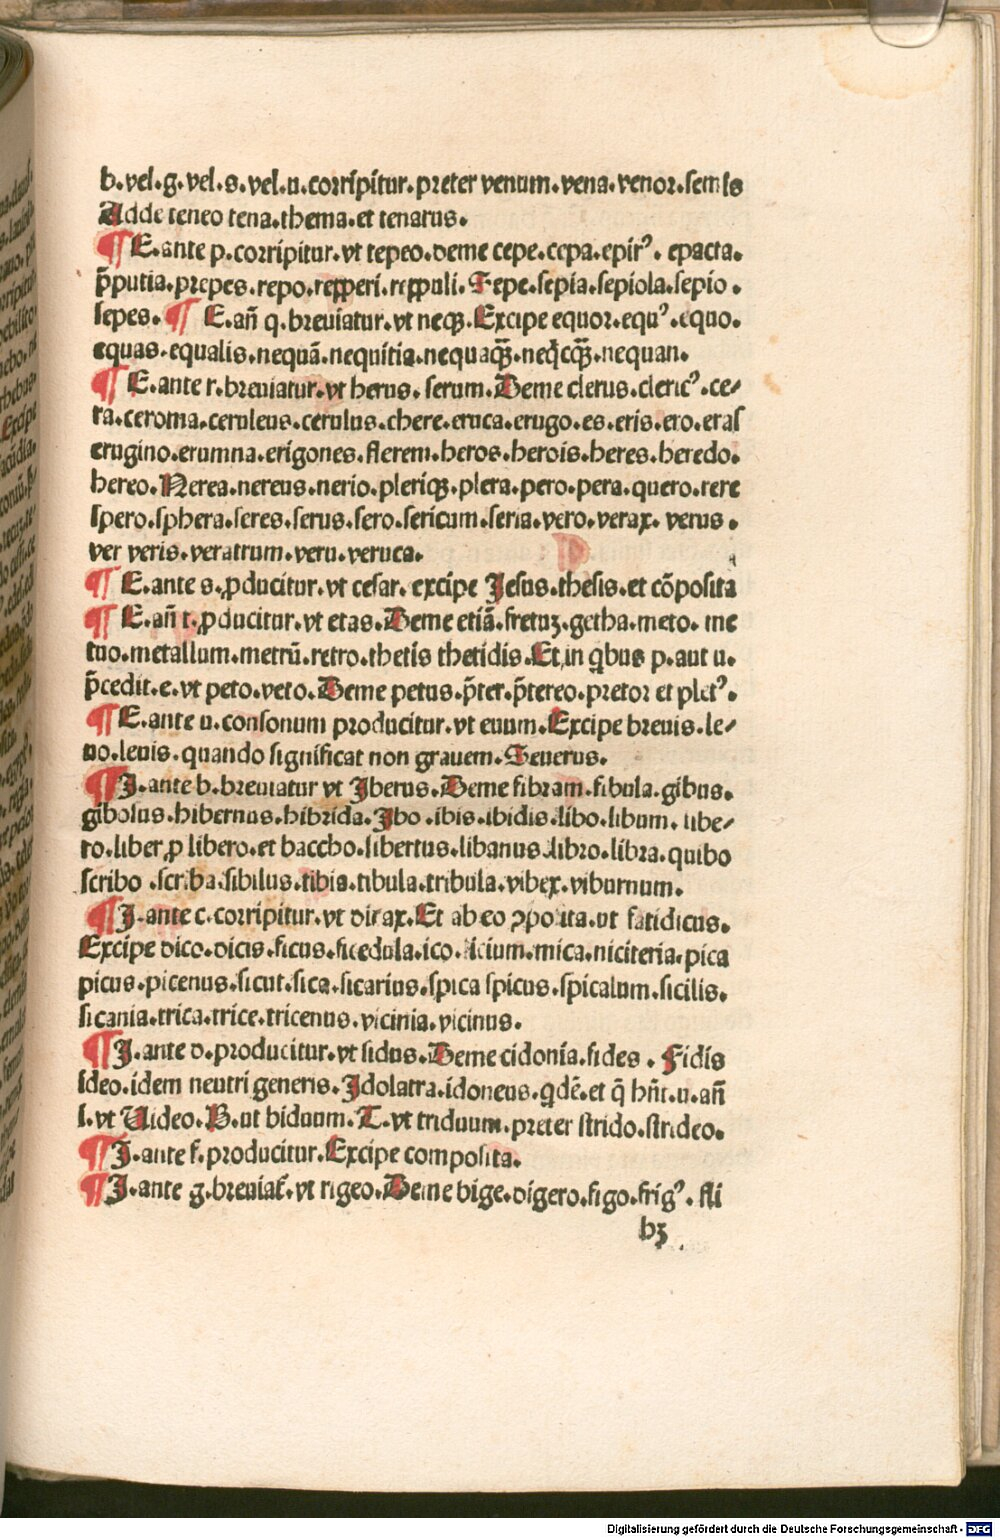 b.vel.g.vel.s.vel.u.corripitur.preter venum.vena.venor.semis
Adde teneo tena.thema.et tenatus.
¶ E.ante p.corripitur.vt tepeo.deme cepe.cepa.epirꝰ. epacta.
p̄putia.prepes.repo.reꝑperi.reꝑpuli.Sepe.sepia.sepiola.sepio.
sepes.¶ E.an̄ q.breuiatur.vt neqꝫ.Excipe equor.equꝰ.equo.
equas.equalis.nequā.nequitia.nequaqꝫ̄.neq̄cqꝫ̄.nequan.
¶ E.ante r.breuiatur.vt herus. serum.Deme clerus.clericꝰ.ce/
ra.ceroma.ceruleus.cerulus.chere.eruca.erugo.es.eris.ero.eras
erugino.erumna.erigones.flerem.heros.herois.heres.heredo.
hereo.Nerea.nereus.nerio.pleriqꝫ.plera.pero.pera.quero.rere
spero.sphera.seres.serus.sero.sericum.seria.vero.verax. verus.
ver veris.veratrum.veru.veruca.
¶ E.ante s.ꝓducitur.vt cesar. excipe Jesus.thesis.et cōposita
¶ E.an̄ t.ꝓducitur.vt etas.Deme etiā.fretuꝫ.getha.meto. me
tuo.metallum.metrū.retro.thetis thetidis.Et in q̇bus p.aut u.
p̄cedit.e.vt peto.veto.Deme petus.p̄ter.p̄tereo.pretor et pletꝰ.
¶ E.ante u.consonum producitur.vt euum.Excipe breuis.le/
uo.leuis.quando significat non grauem.Seuerus.
¶ J.ante b.breuiatur vt Jberus.Deme fibram.fibula.gibus.
gibolus.hibernus.hibrida.Jbo.ibis.ibidis.libo.libum.libe/
ro.liber ꝓ libero.et baccho.libertus.libanus.libro.libra.quibo
scribo.scriba.sibilus.tibia.tibula.tribula.vibex.viburnum.
¶ J.ante c.corripitur.vt dicax.Et ab eo ꝯposita.ut fatidicus.
Excipe dico.dicis.ficus.ficedula.ico.licium.mica.niciteria.pica
picus.picenus.sicut.sica.sicarius.spica spicus.spicalum.sicilis.
sicania.trica.trice.tricenus.vicinia.vicinus.
¶ J.ante d.producitur.vt sidus.Deme cidonia.fides. Fidis
ideo.idem neutri generis.Jdolatra.idoneus.q̇dē.et q̄ hn̄t.u.an̄
i.vt Uideo.B.ut biduum.T.vt triduum.preter strido.strideo.
¶ J.ante f.producitur.Excipe composita.
¶ J.ante g.breuiat᷑.vt rigeo.Deme bige.digero.figo.frigꝰ.fli
bꝫ
Digitalisierung gefördert durch die Deutsche Forschungsgemeinschaft - DFG